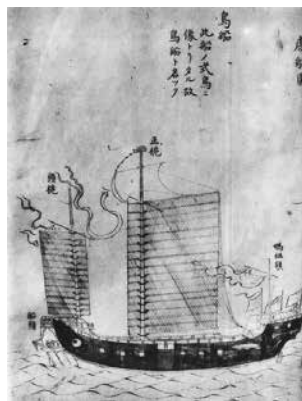 鳥船
此船ノ式鳥ニ
像トリタル故
鳥船ト名ツク
正桅
頭桅
媽祖旗